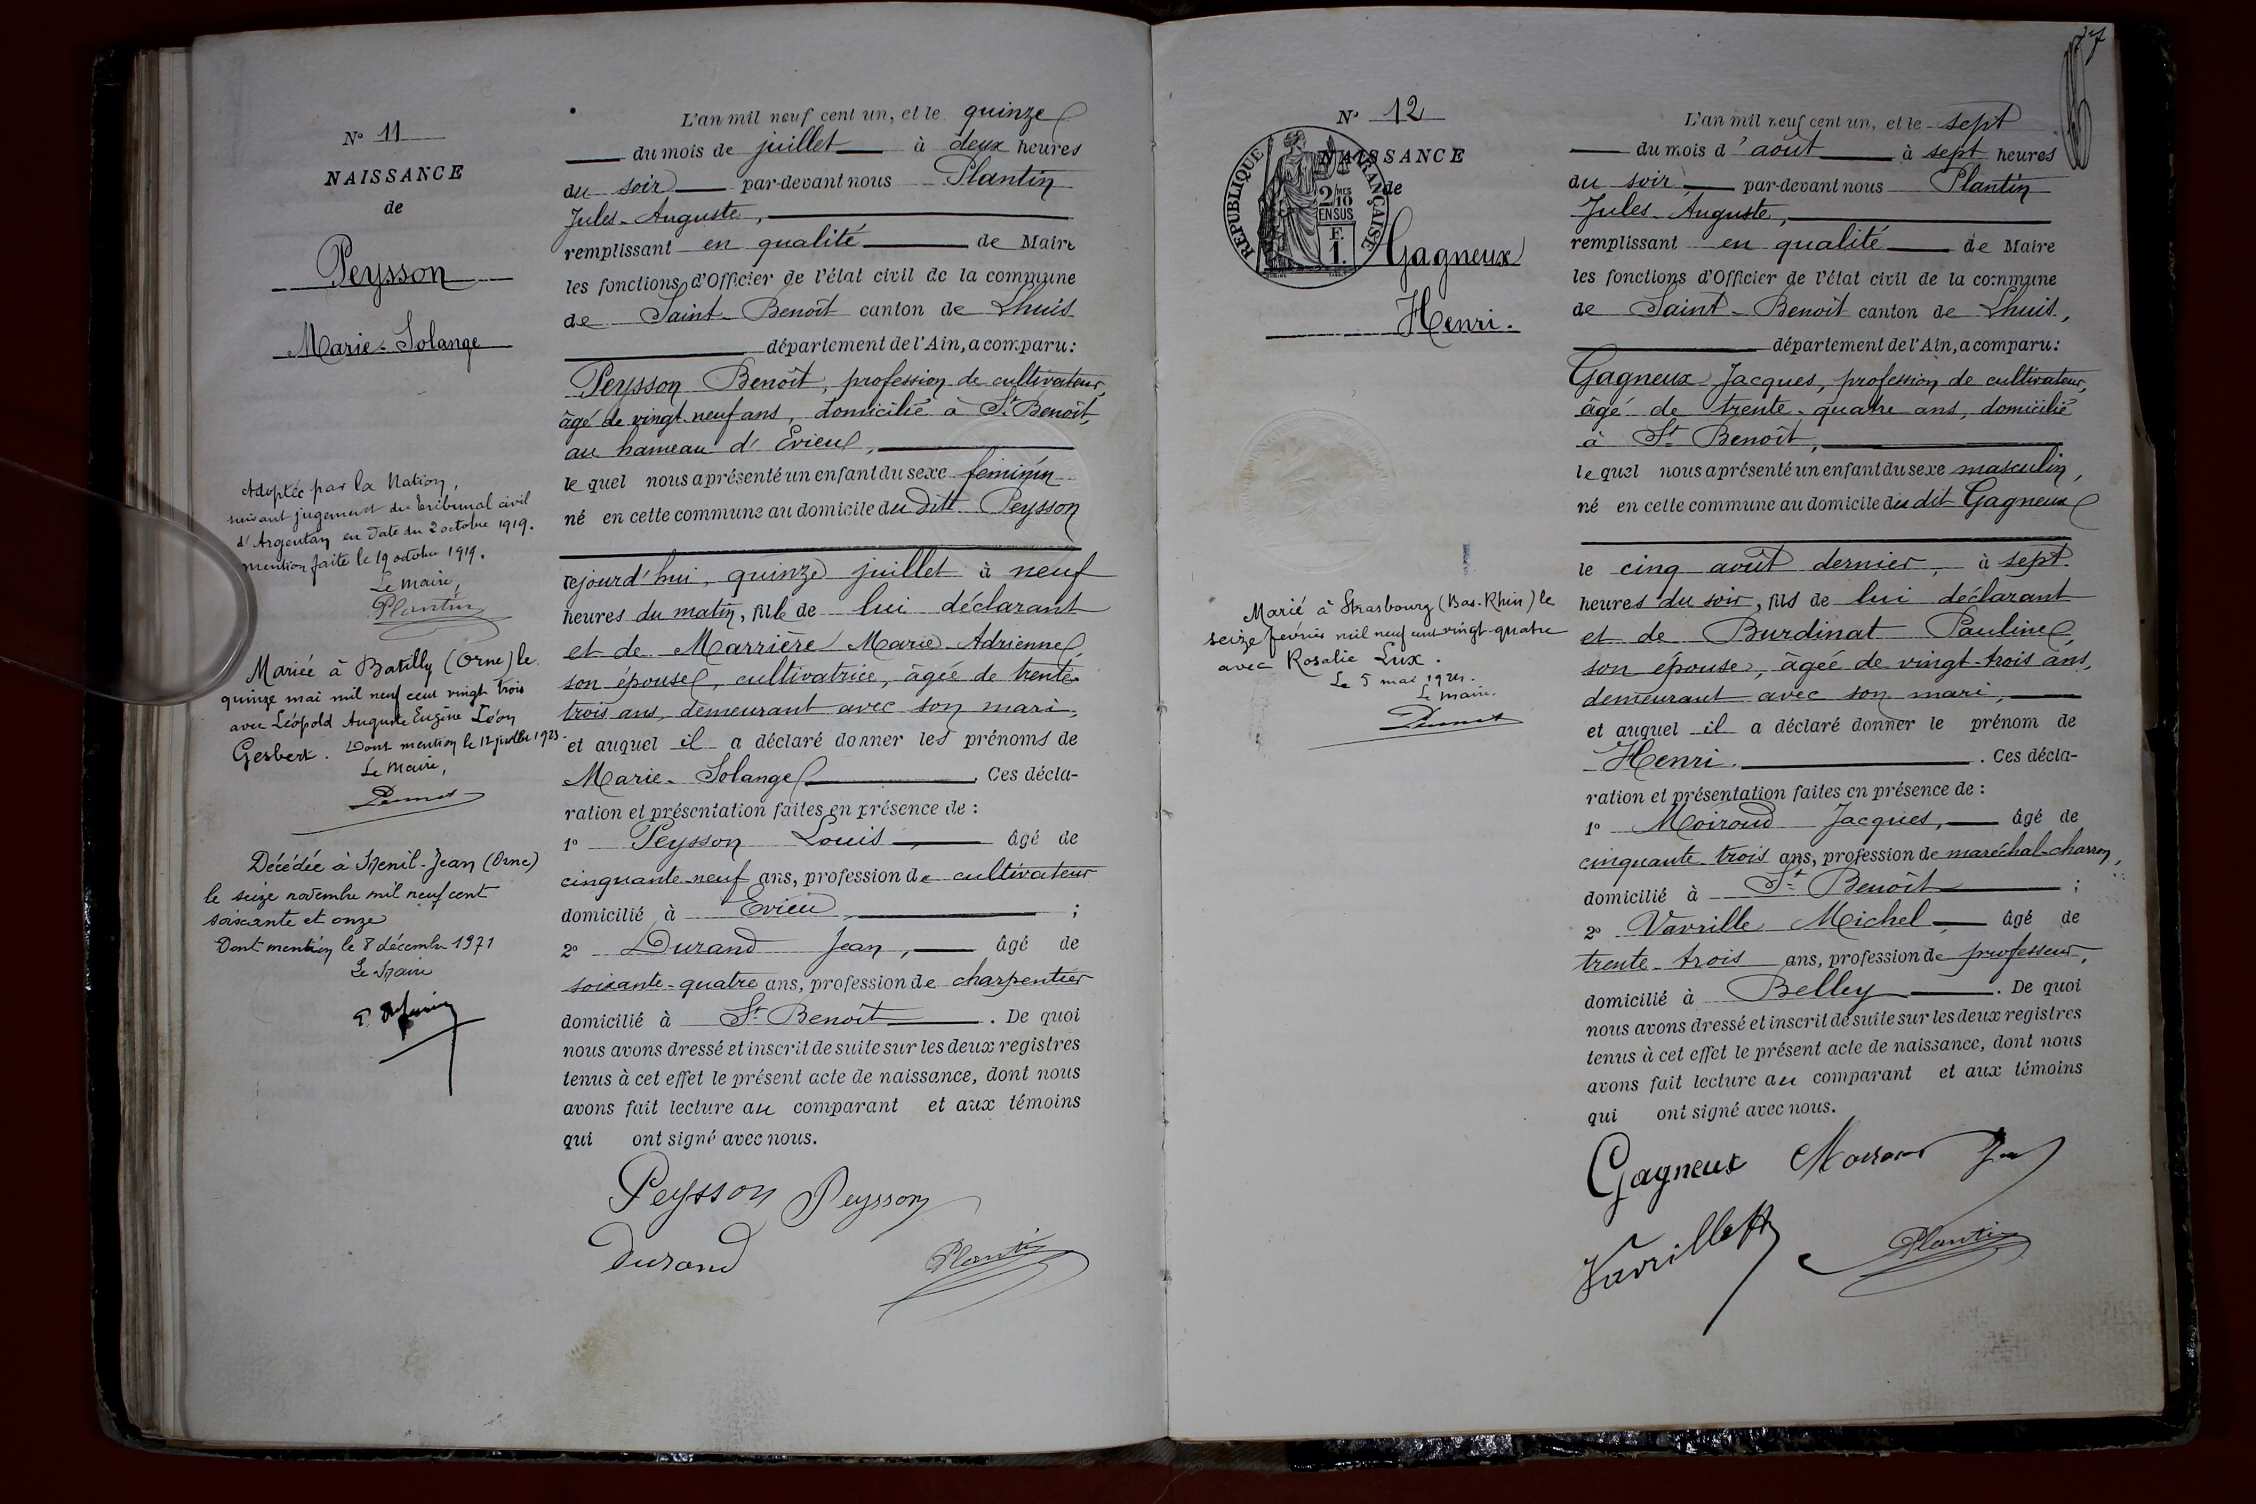 N° 11
NAISSANCE
de
Peysson
Marie-Solange
Adoptée par la Nation,
suivant jugement du tribunal civil
d'Argentan en date du 2 octobre 1919.
mention faite le 19 octobre 1919.
Le maire,
Plantin
Mariée à Batilly (Orne) le
quinze mai mil neuf cent vingt trois
avec Léopold Auguste Eugène Léon
Gesbert. Dont mention le 12 juillet 1923.
Le Maire,
Décédée à Menil-Jean (Orne)
le seize novembre mil neuf cent
soixante et onze
Dont mention le 8 décembre 1971
Le Maire
L'an mil neuf cent un, et le quinze
du mois de juillet à deux heures
du soir par-devant nous Plantin
Jules-Auguste,
remplissant en qualité de Maire
les fonctions d'Officier de l'état civil de la commune
de Saint-Benoît canton de Lhuis
département de l'Ain, a comparu:
Peysson Benoît, profession de cultivateur,
âgé de vingt-neuf ans, domicilié à St Benoît,
au hameau d'Evieu,
le quel nous a présenté un enfant du sexe féminin
né en cette commune au domicile du dit Peysson
cejourd'hui, quinze juillet à neuf
heures du matin, fille de lui déclarant
et de Marrière Marie-Adrienne,
son épouse, cultivatrice, âgée de trente
trois ans, demeurant avec son mari,
et auquel il a déclaré donner les prénoms de
Marie-Solange. Ces décla-
ration et présentation faites en présence de :
1° Peysson Louis, âgé de
cinquante-neuf ans, profession de cultivateur
domicilié à Evieu, ;
2° Durand Jean, âgé de
soixante-quatre ans, profession de charpentier
domicilié à St Benoît. De quoi
nous avons dressé et inscrit de suite sur les deux registres
tenus à cet effet le présent acte de naissance, dont nous
avons fait lecture au comparant et aux témoins
qui ont signé avec nous.
Peysson Peysson
Durand Plantin
N° 12
NAISSANCE
de
RÉPUBLIQUE FRANÇAISE
2/10 MES
EN SUS
F.
1.
Gagneux
Henri.
Marié à Strasbourg (Bas-Rhin) le
seize février mil neuf cent vingt-quatre
avec Rosalie Lux.
Le 5 mai 1924.
Le Maire.
L'an mil neuf cent un, et le sept
du mois d'août à sept heures
du soir par-devant nous Plantin
Jules-Auguste,
remplissant en qualité de Maire
les fonctions d'Officier de l'état civil de la commune
de Saint-Benoît canton de Lhuis,
département de l'Ain, a comparu:
Gagneux Jacques, profession de cultivateur,
âgé de trente-quatre ans, domicilié
à St Benoît,
le quel nous a présenté un enfant du sexe masculin,
né en cette commune au domicile du dit Gagneux
le cinq août dernier, à sept
heures du soir, fils de lui déclarant
et de Burdinat Pauline,
son épouse, âgée de vingt-trois ans,
demeurant avec son mari,
et auquel il a déclaré donner le prénom de
Henri. Ces décla-
ration et présentation faites en présence de :
1° Moiroud Jacques, âgé de
cinquante-trois ans, profession de maréchal-charron,
domicilié à St Benoît ;
2° Vavrille Michel, âgé de
trente-trois ans, profession de professeur,
domicilié à Belley. De quoi
nous avons dressé et inscrit de suite sur les deux registres
tenus à cet effet le présent acte de naissance, dont nous
avons fait lecture au comparant et aux témoins
qui ont signé avec nous.
Gagneux Moiroud
Vavrille Plantin